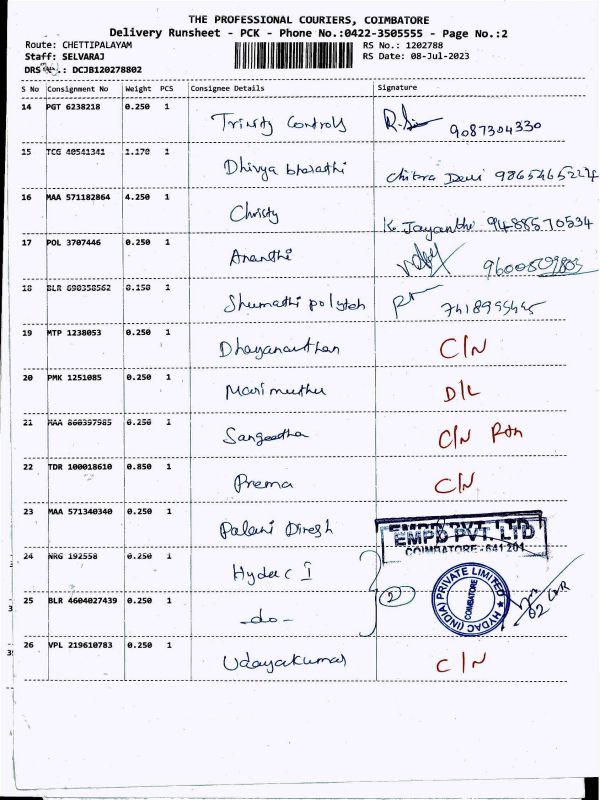 THE PROFESSIONAL COURIERS, COIMBATORE
Delivery Runsheet - PCK - Phone No.:0422-3505555 - Page No.:2
Route: CHETTIPALAYAM RS No.: 1202788
Staff: SELVARAJ RS Date: 08-Jul-2023
DRS .: DCJB120278802
S No Consignment No Weight PCS Consignee Details Signature
14 PGT 6238218 0.250 1 Trinity Controls 9087304330
15 TCG 40541341 1.170 1 Dhivya bharathi Chitra Devi
16 MAA 571182864 4.250 1 Christy K Jayanthi 9488570534
17 POL 3707446 0.250 1 Ananthi
18 BLR 690358562 0.150 1 Shumathi polyteh
19 MTP 1238053 0.250 1 Dhayananthan C/N
20 PMK 1251085 0.250 1 Marimuthu D/L
21 MAA 860397985 0.250 1 Sangeetha C/N Rtn
22 TDR 100018610 0.850 1 Prema C/N
23 MAA 571340340 0.250 1 Palani Diresh EMPD PVT. LTD
COIMBATORE - 641 201
24 NRG 192558 0.250 1 Hydac I
25 BLR 4604027439 0.250 1 -do- 2 HYDAC (INDIA) PRIVATE LIMITED COIMBATORE
26 VPL 219610783 0.250 1 Udayakumar C/N